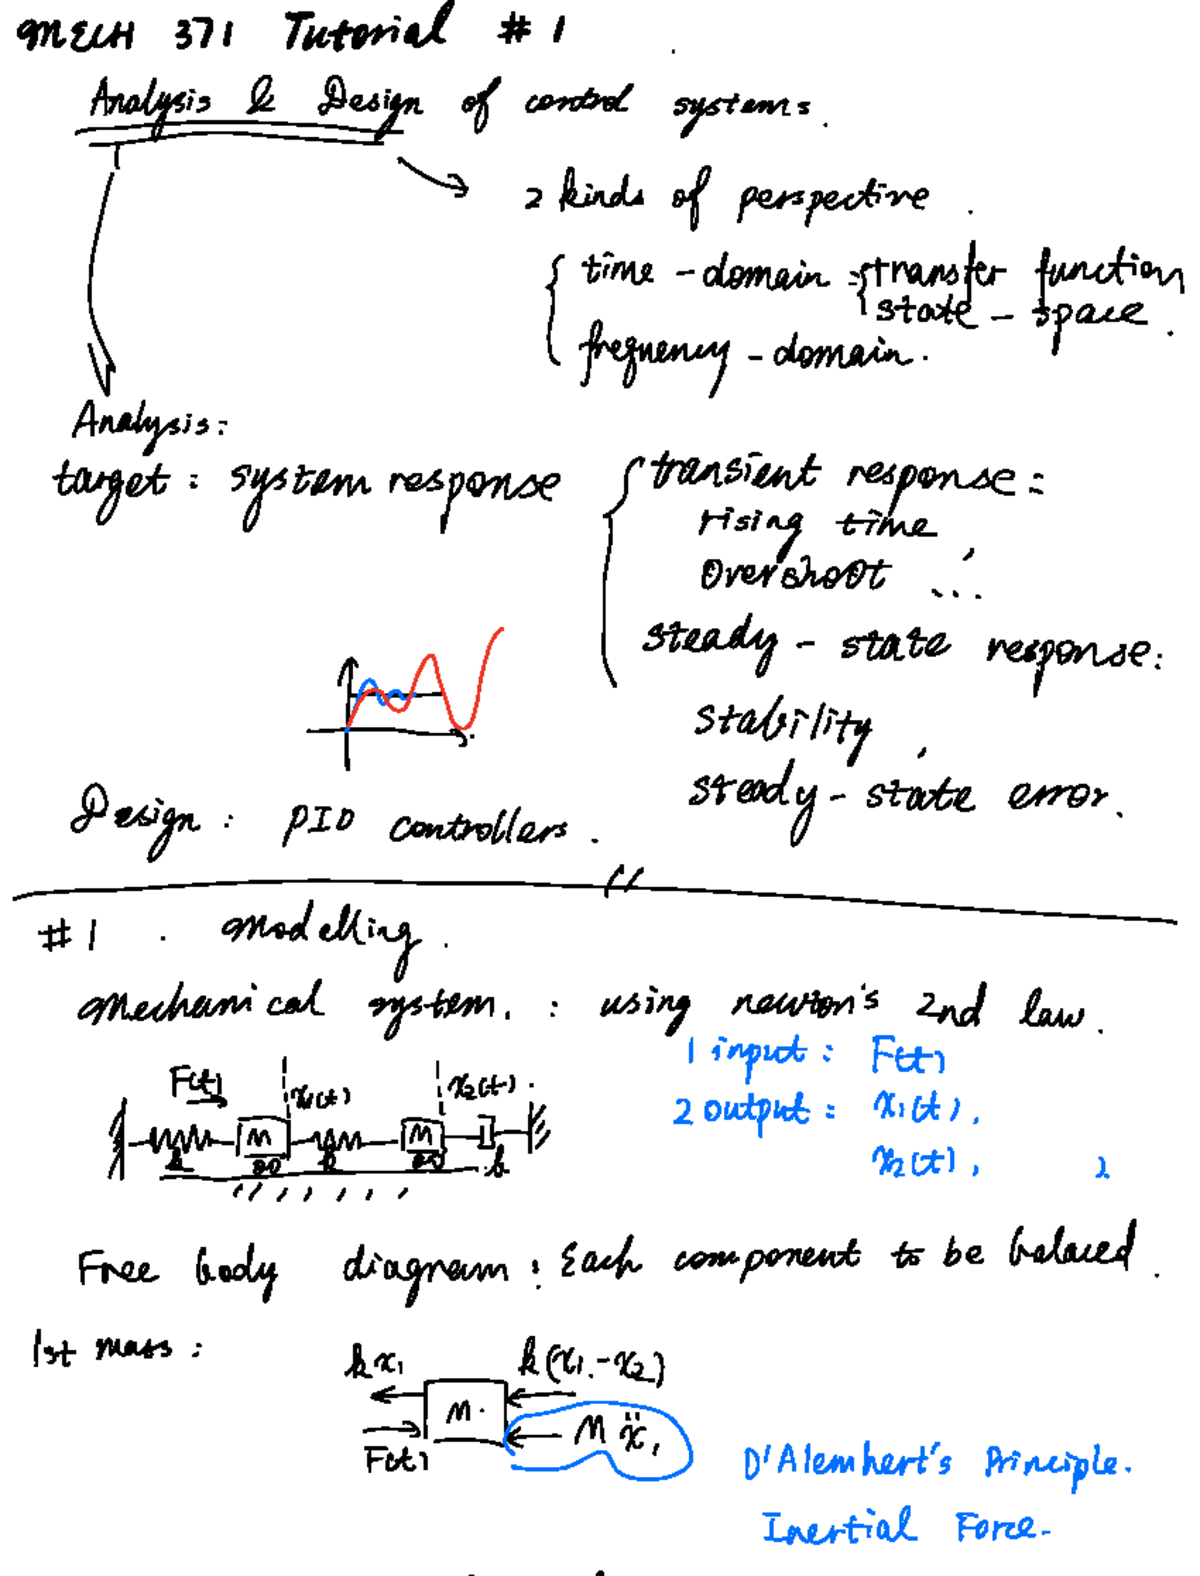 MECH 371 Tutorial # 1
Analysis & Design of control systems.
2 kinds of perspective.
time - domain : transfer function
state - space.
frequency - domain.
Analysis:
target : system response
transient response :
rising time,
overshoot ...
steady - state response:
stability,
steady - state error.
Design : PID controllers.
#1 . Modelling.
Mechanical system. : using newton's 2nd law.
1 input : F(t)
2 output : x₁(t),
x₂(t),
F(t) x₁(t) x₂(t).
k M k M b
Free body diagram : Each component to be balaced.
1st mass :
kx₁ k(x₁-x₂)
M.
F(t) M ẍ₁
D'Alemhert's Principle.
Inertial Force.